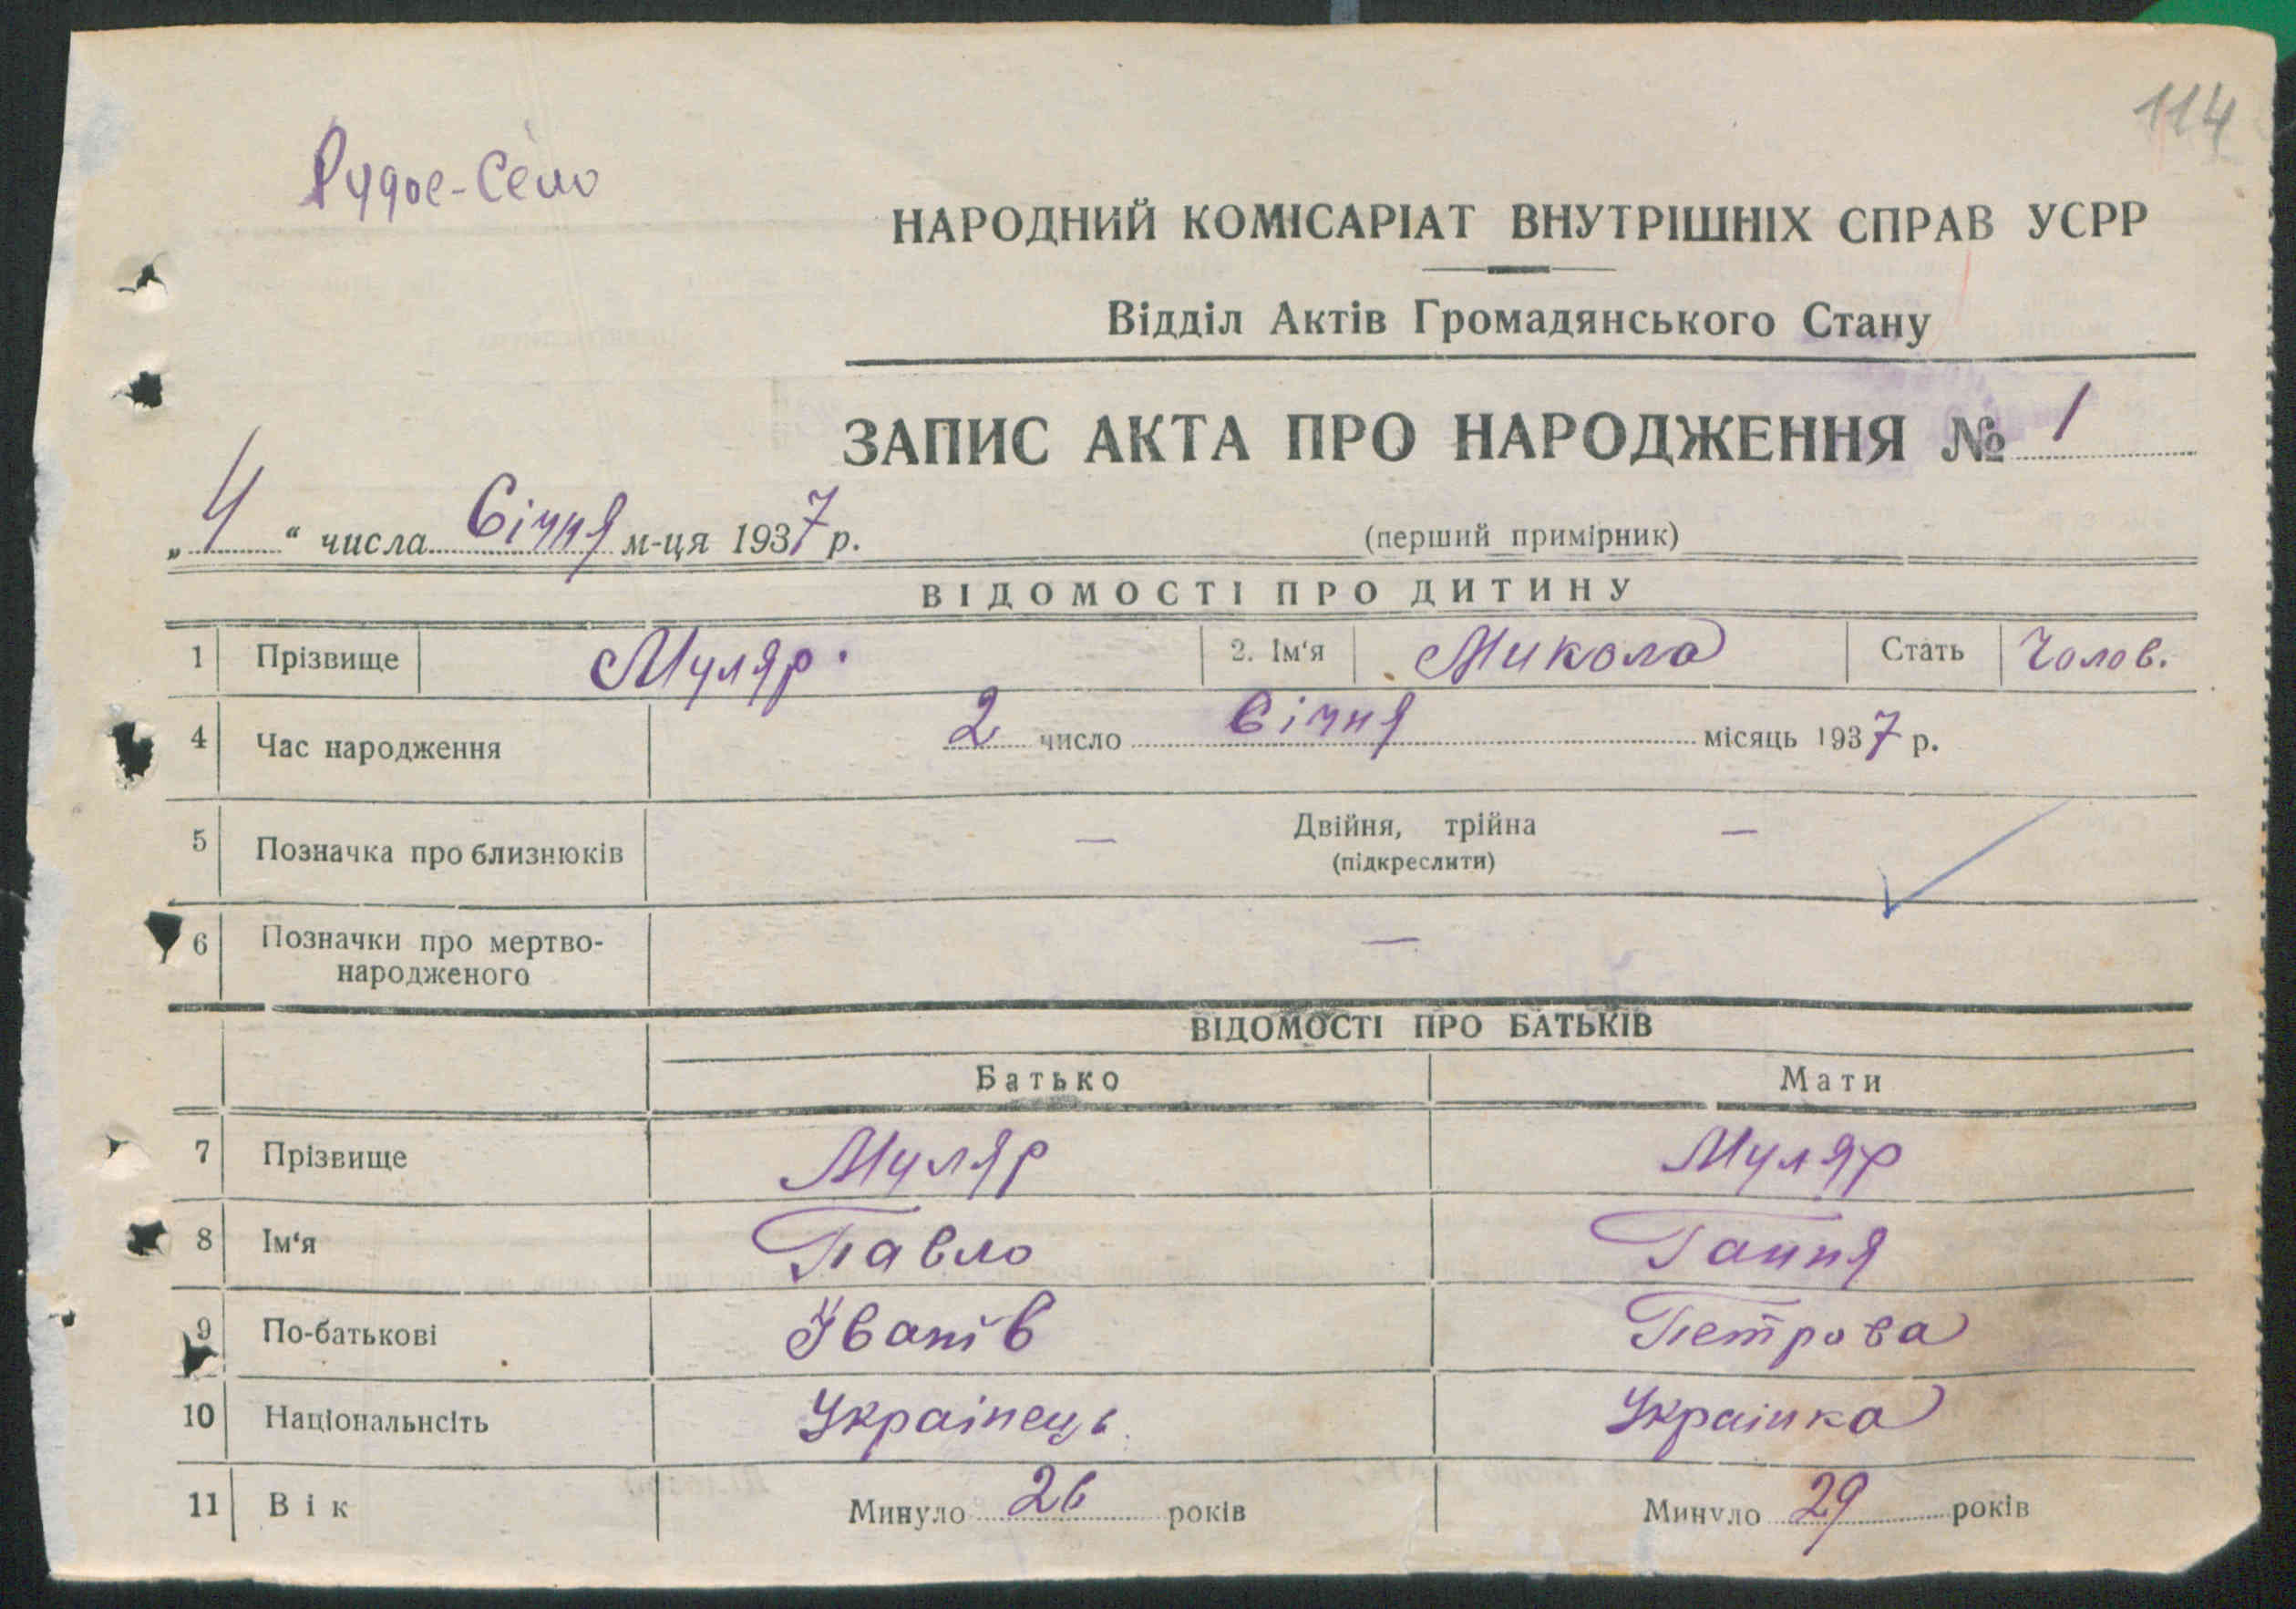 114
Рудое-Село
НАРОДНИЙ КОМІСАРІАТ ВНУТРІШНІХ СПРАВ УСРР
Відділ Актів Громадянського Стану
ЗАПИС АКТА ПРО НАРОДЖЕННЯ № 1
„ 4 “ числа Січня м-ця 1937 р.
(перший примірник)
ВІДОМОСТІ ПРО ДИТИНУ
1 Прізвище Муляр. 2. Ім'я Микола Стать Чолов.
4 Час народження 2 число Січня місяць 1937 р.
5 Позначка про близнюків — Двійня, трійна —
(підкреслити)
6 Позначки про мертво-
народженого —
ВІДОМОСТІ ПРО БАТЬКІВ
Батько Мати
7 Прізвище Муляр Муляр
8 Ім'я Павло Гання
9 По-батькові Іванів Петрова
10 Національнсіть Українець Українка
11 Вік Минуло 26 років Минуло 29 років